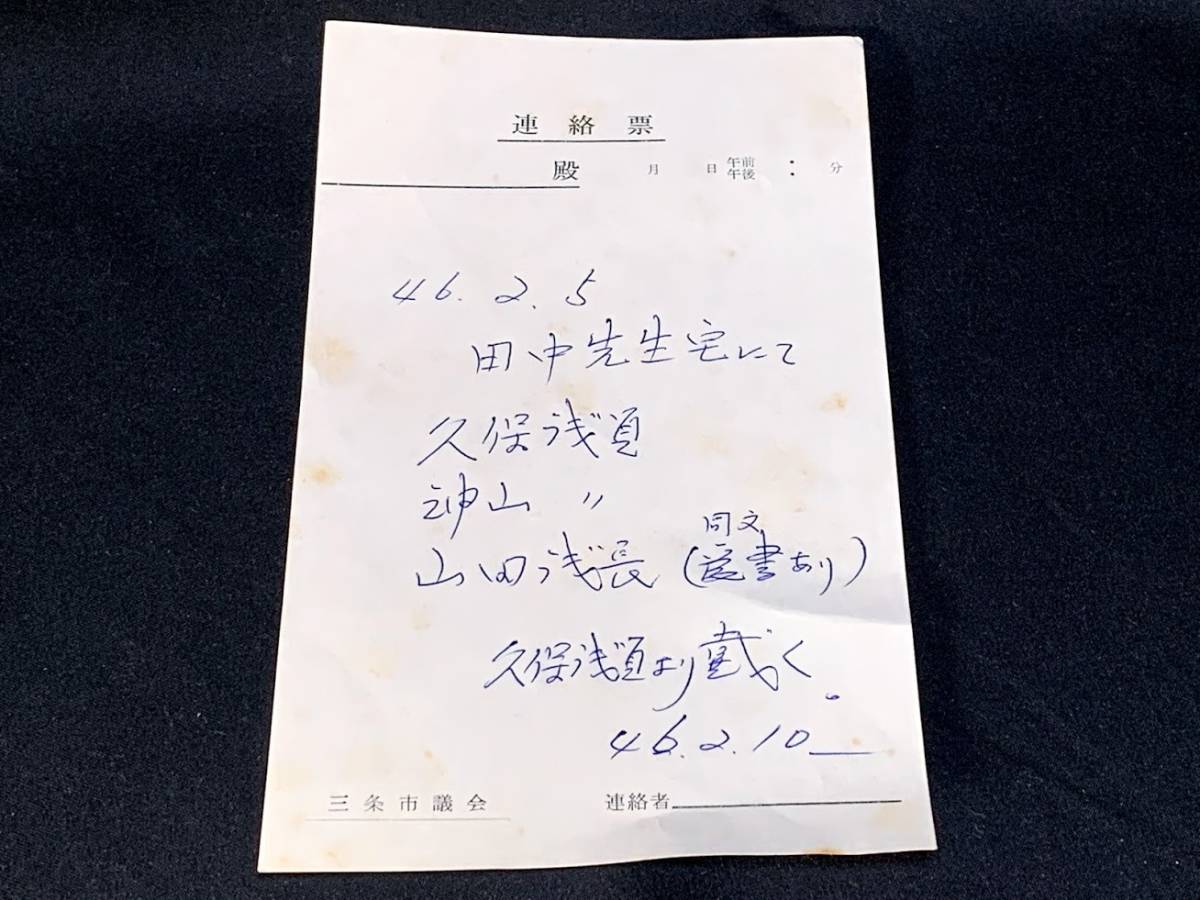 連絡票
殿 月 日 午前 午後 : 分
46.2.5
田中先生宅にて
久保議員
神山 〃
山田議長 (同文覚書あり)
久保議員より戴く。
46.2.10
三条市議会 連絡者